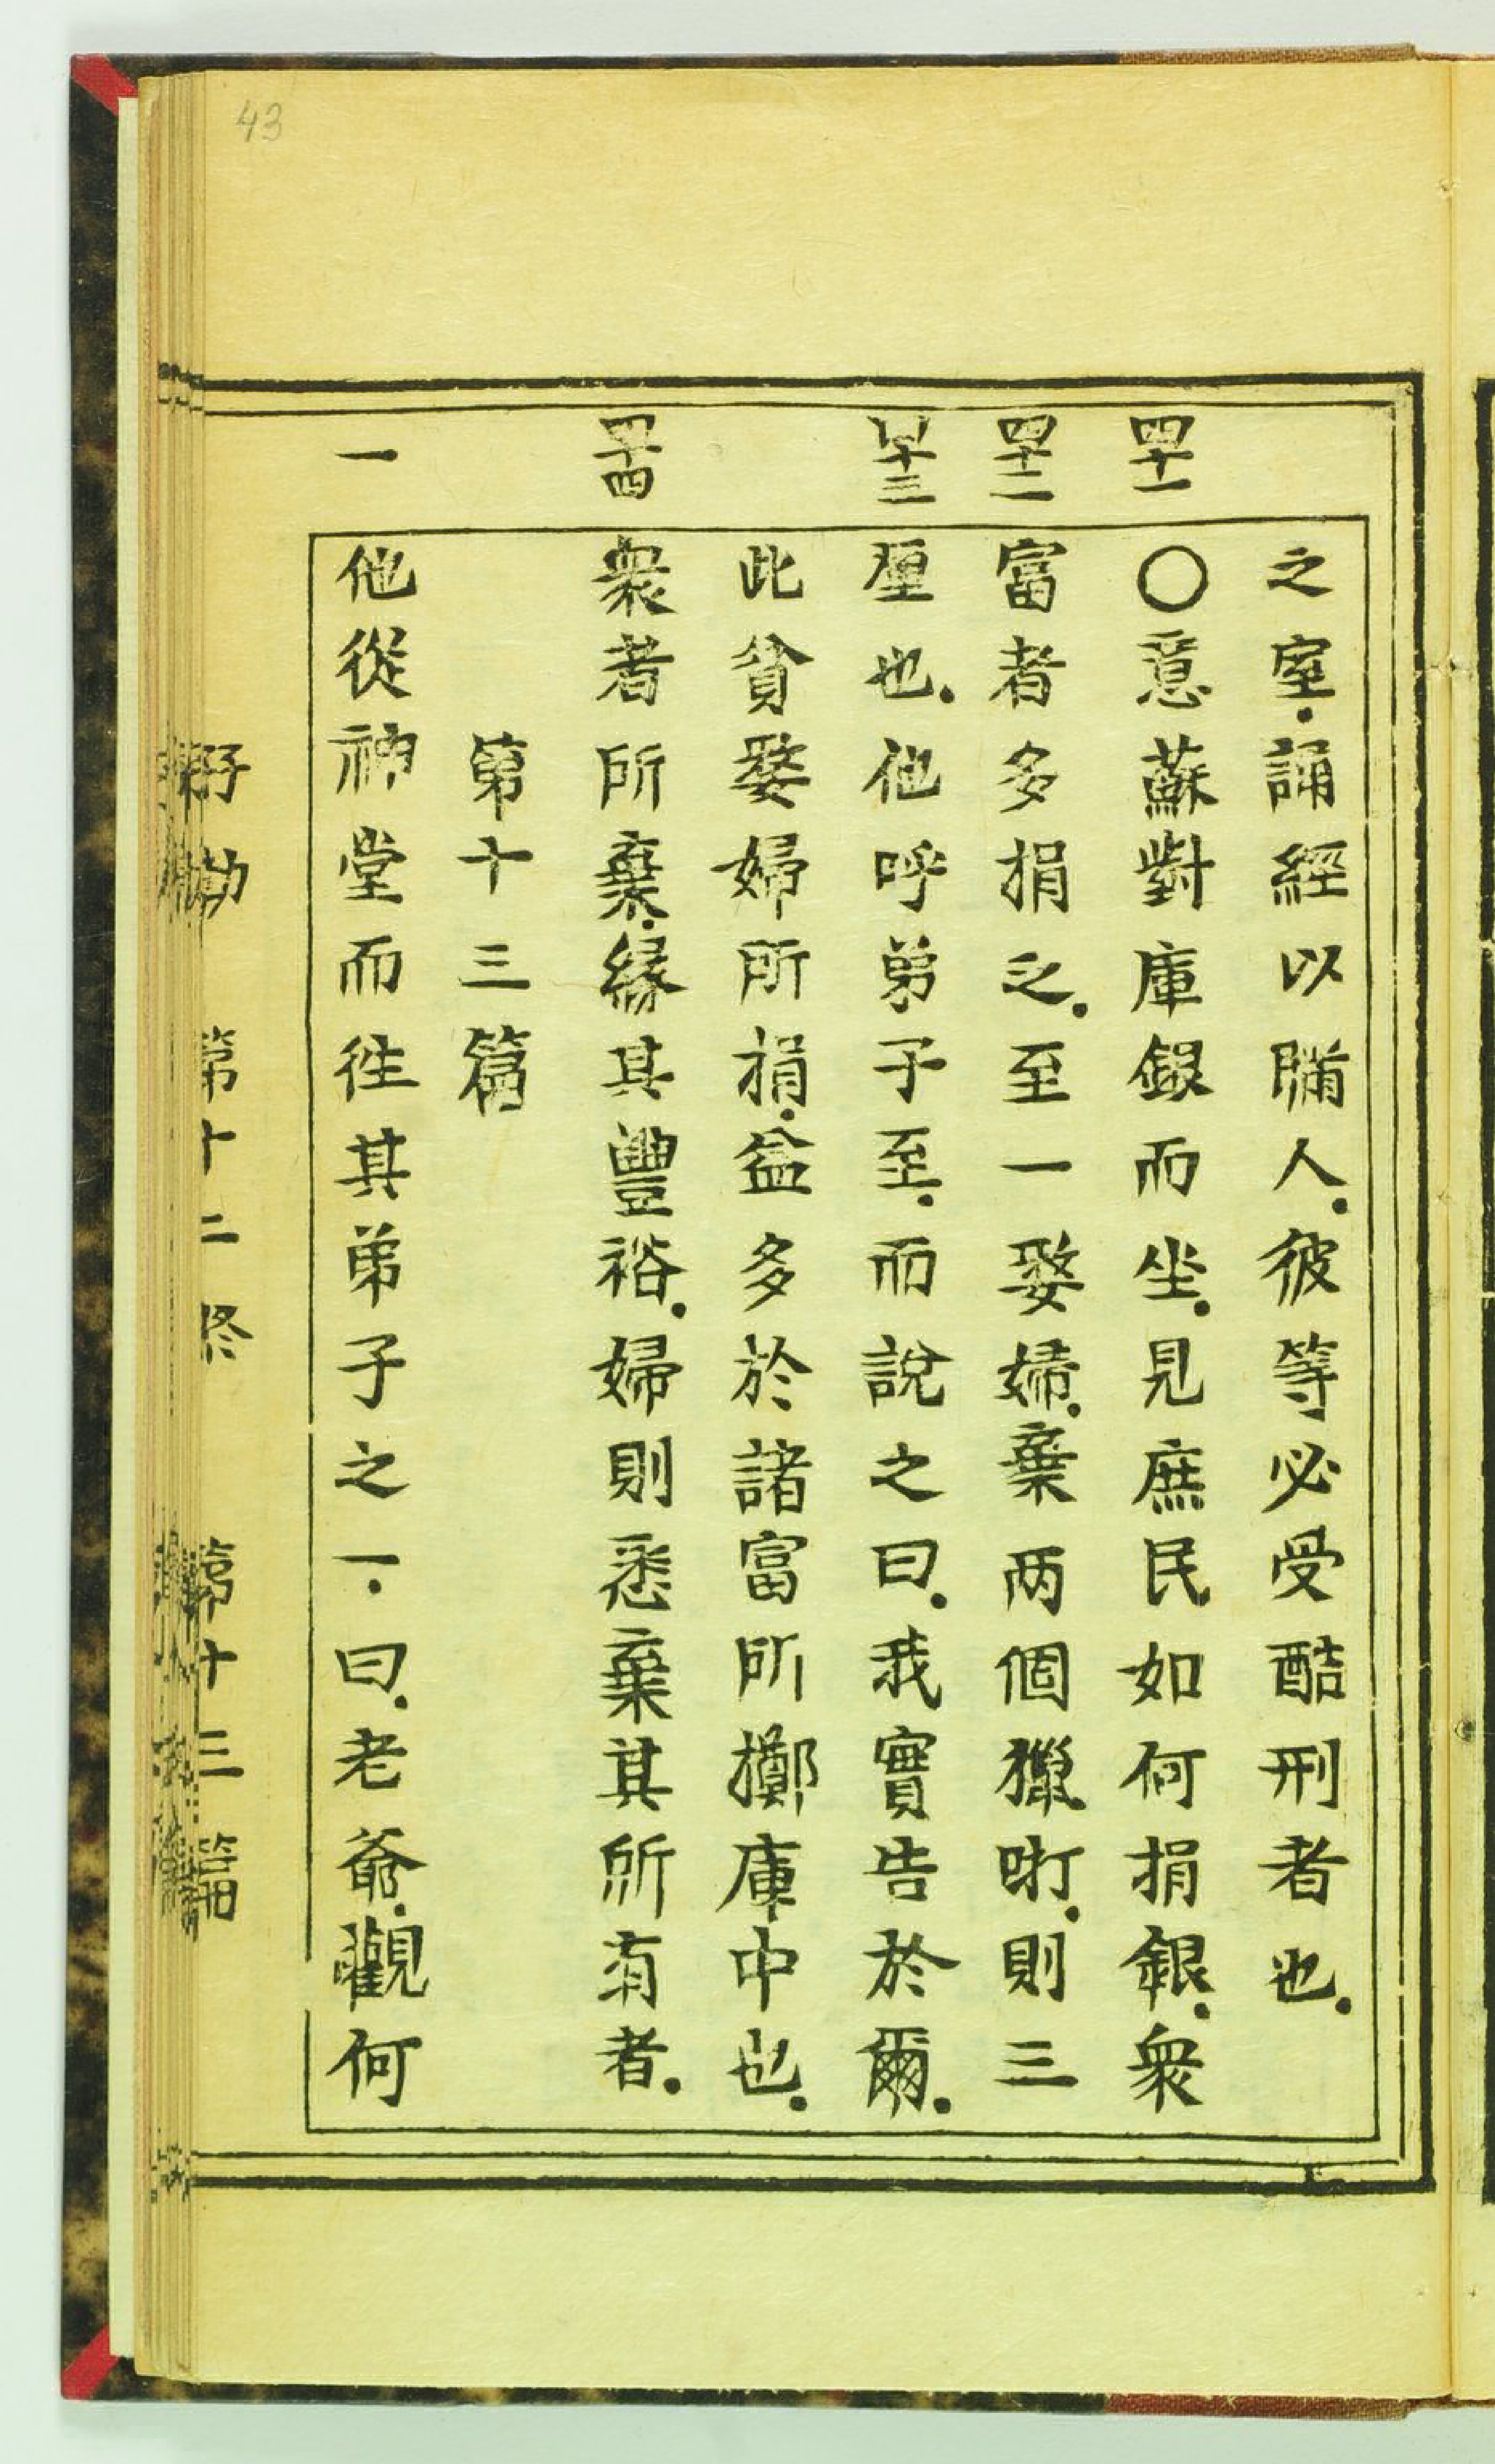 43
之室.誦經以瞞人.彼等必受酷刑者也.
四十一
〇意蘇對庫録而坐.見庶民如何捐銀.衆
四十二
富者多捐之.至一嫠婦.棄两個獵呀.則三
四十三
厘也.他呼弟子至.而說之曰.我實告於爾.
此貧嫠婦所捐.益多於諸富所擲庫中也.
四十四
衆者所棄.緣其豐裕.婦則悉棄其所有者.
第十三篇
一
他從神堂而徃其弟子之一.曰.老爺.觀何
第十二終
第十三篇